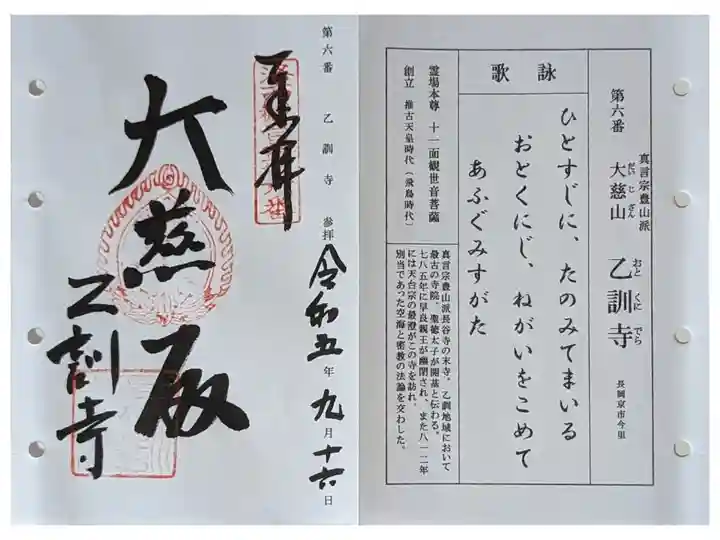 真言宗豊山派
第六番 大慈山 乙訓寺
だいじざん
おとくにでら
長岡京市今里
詠歌
ひとすじに、たのみてまいる
おとくにじ、ねがいをこめて
あふぐみすがた
霊場本尊 十一面観世音菩薩
創立 推古天皇時代(飛鳥時代)
真言宗豊山派長谷寺の末寺。乙訓地域において
最古の寺院。聖徳太子が開基と伝わる。
七八五年に早良親王が幽閉され、また八一二年
には天台宗の最澄がこの寺を訪れ、
別当であった空海と密教の法論を交わした。
奉拝
大慈殿
乙訓寺
第六番 乙訓寺 参拝 令和五年九月十六日